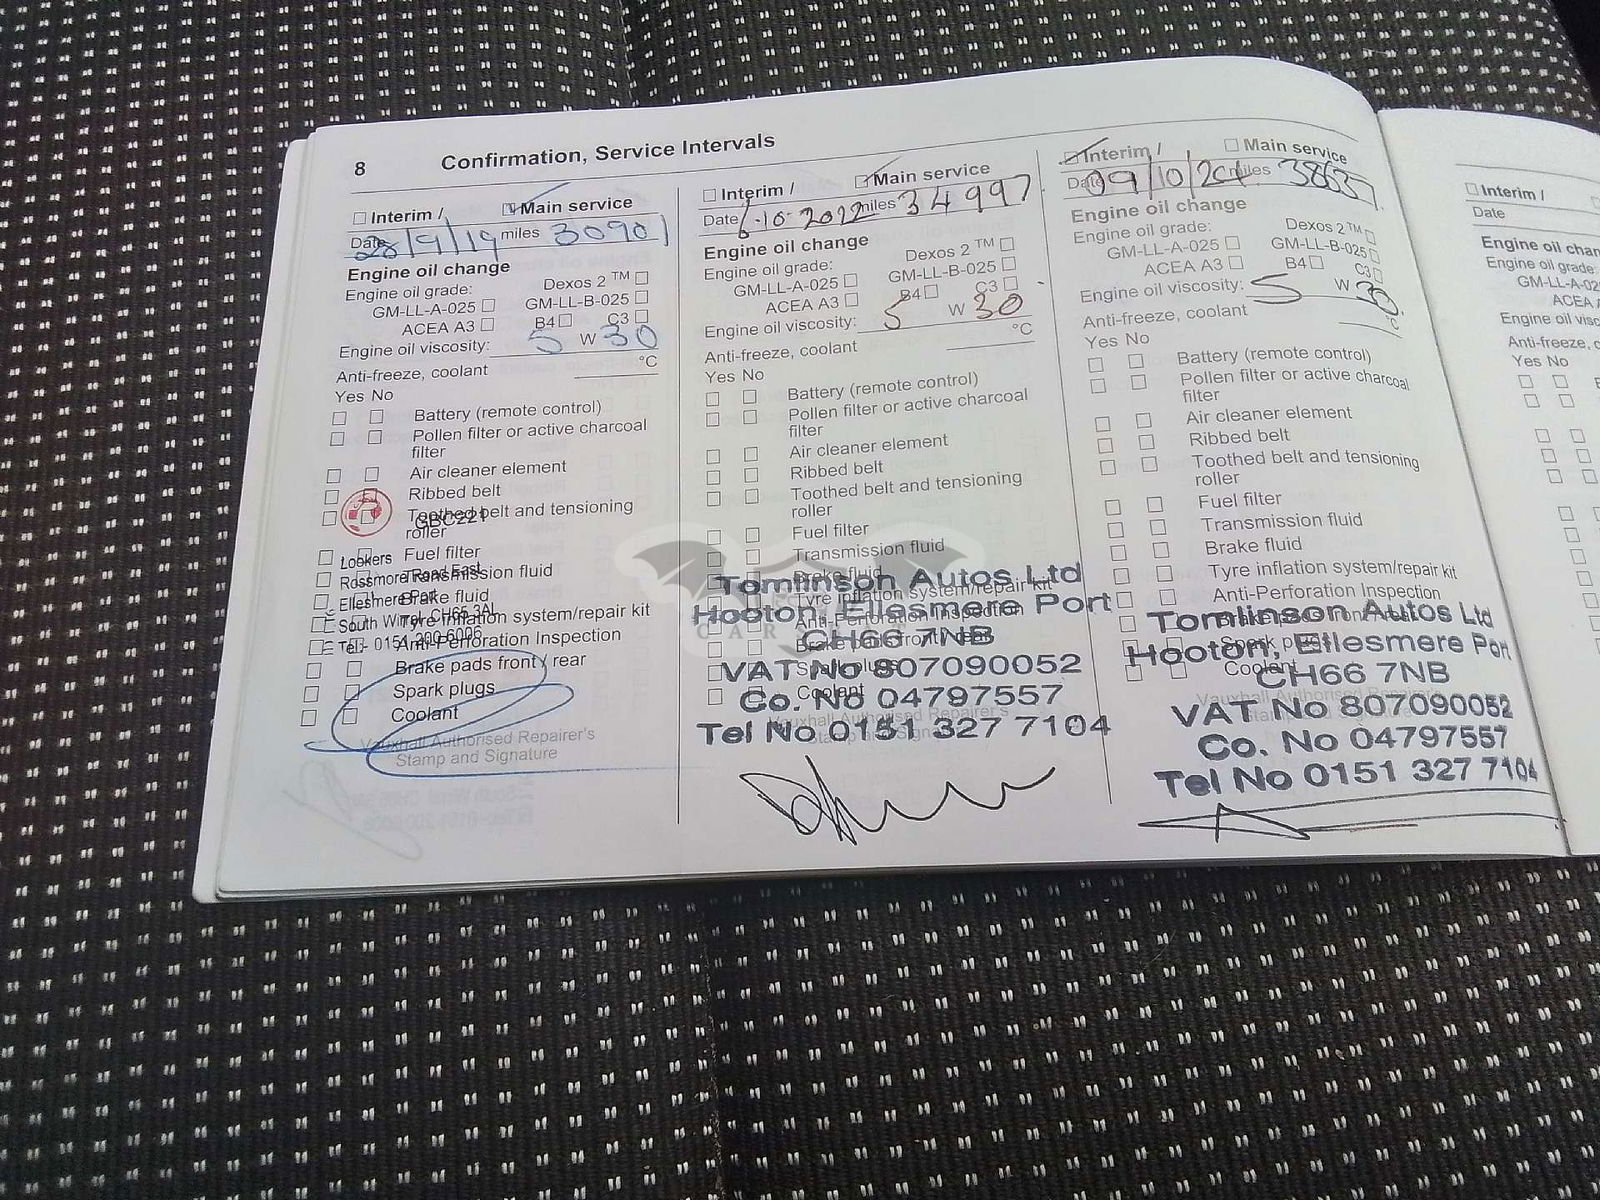 8
Confirmation, Service Intervals
Interim /
Main service
Date 28/9/19 miles 30901
Engine oil change
Engine oil grade:
Dexos 2 ™
GM-LL-A-025
GM-LL-B-025
ACEA A3
B4
C3
Engine oil viscosity: 5 W 30
Anti-freeze, coolant
°C
Yes No
Battery (remote control)
Pollen filter or active charcoal
filter
Air cleaner element
Ribbed belt
Toothed belt and tensioning
roller
Fuel filter
Transmission fluid
Brake fluid
Tyre inflation system/repair kit
Anti-Perforation Inspection
Brake pads front / rear
Spark plugs
Coolant
Vauxhall Authorised Repairer's
Stamp and Signature
GBC221
Lookers
Rossmore Road East
Ellesmere Port
South Wirral CH65 3AL
Tel:- 0151 200 6006
Interim /
Main service
Date 6-10-2022 miles 34997
Engine oil change
Engine oil grade:
Dexos 2 ™
GM-LL-A-025
GM-LL-B-025
ACEA A3
B4
C3
Engine oil viscosity: 5 W 30
°C
Anti-freeze, coolant
Yes No
Battery (remote control)
Pollen filter or active charcoal
filter
Air cleaner element
Ribbed belt
Toothed belt and tensioning
roller
Fuel filter
Transmission fluid
Brake fluid
Tyre inflation system/repair kit
Anti-Perforation Inspection
Brake pads front / rear
Spark plugs
Coolant
Vauxhall Authorised Repairer's
Stamp and Signature
Tomlinson Autos Ltd
Hooton, Ellesmere Port
CH66 7NB
VAT No 807090052
Co. No 04797557
Tel No 0151 327 7104
CARS
Interim /
Main service
Date 09/10/24 miles 38637
Engine oil change
Engine oil grade:
Dexos 2 ™
GM-LL-A-025
GM-LL-B-025
ACEA A3
B4
C3
Engine oil viscosity: 5 W 30
Anti-freeze, coolant
°C
Yes No
Battery (remote control)
Pollen filter or active charcoal
filter
Air cleaner element
Ribbed belt
Toothed belt and tensioning
roller
Fuel filter
Transmission fluid
Brake fluid
Tyre inflation system/repair kit
Anti-Perforation Inspection
Spark plugs
Coolant
Tomlinson Autos Ltd
Hooton, Ellesmere Port
CH66 7NB
VAT No 807090052
Co. No 04797557
Tel No 0151 327 7104
Interim /
Date
Engine oil
Engine oil grade:
ACEA
Engine oil
Anti-freeze,
Yes No